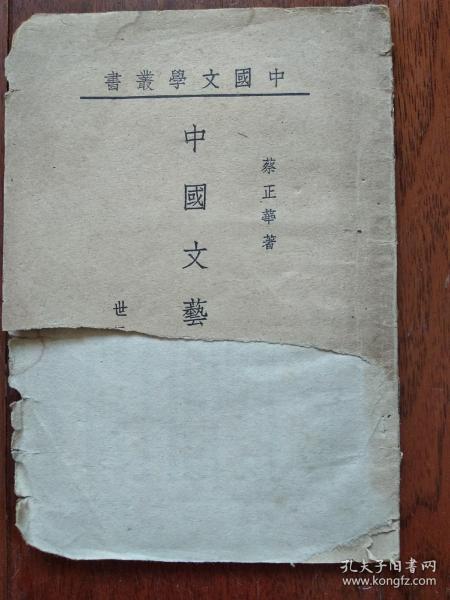 書叢學文國中
蔡正華著
中國文藝
世
孔夫子旧书网
www.kongfz.com